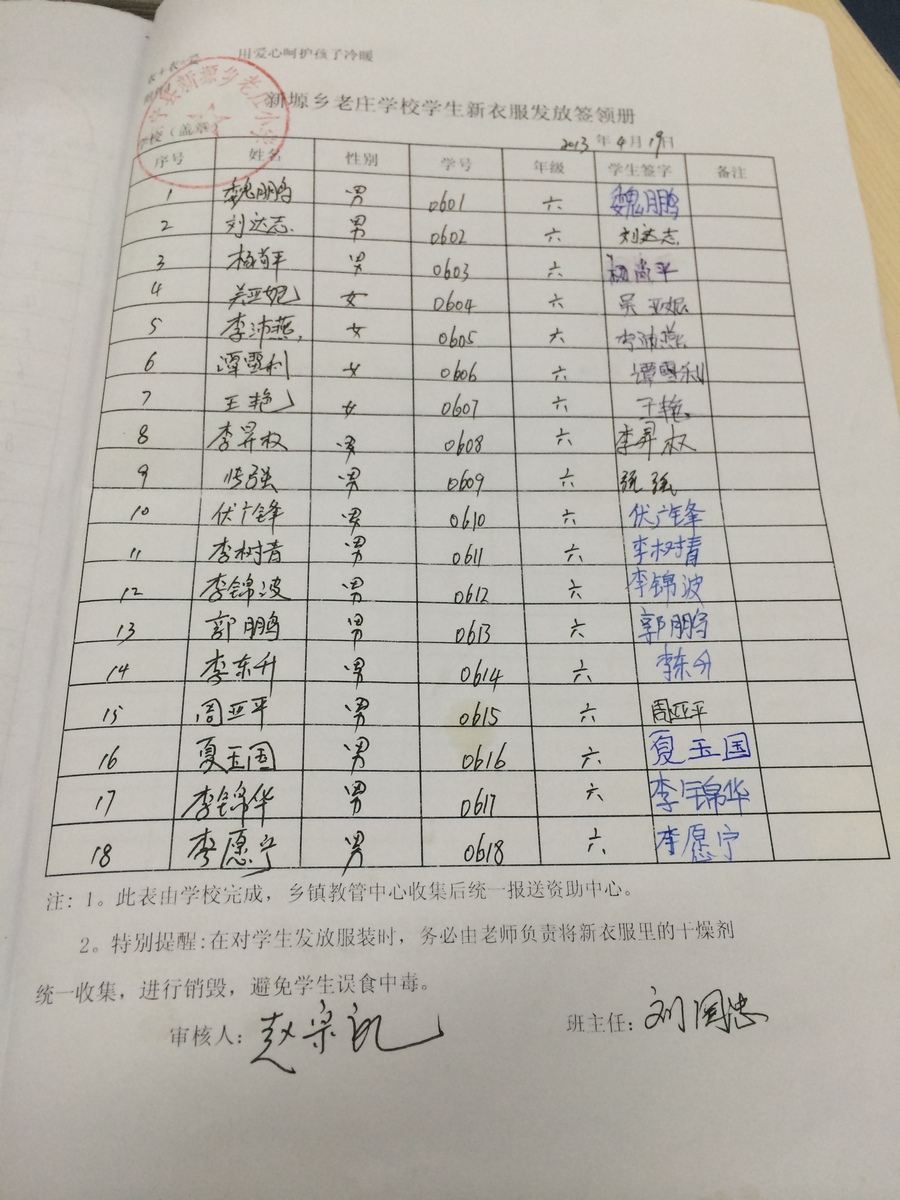 用爱心呵护孩子冷暖
新塬乡老庄学校学生新衣服发放签领册
学校（盖章）
2013 年 4 月 19 日
序号 姓名 性别 学号 年级 学生签字 备注
1 魏鹏 男 0601 六 魏鹏
2 刘达志 男 0602 六 刘达志
3 杨尚平 男 0603 六 杨尚平
4 吴亚妮 女 0604 六 吴亚妮
5 李沛燕 女 0605 六 李沛燕
6 谭雪利 女 0606 六 谭雪利
7 王艳 女 0607 六 王艳
8 李昇权 男 0608 六 李昇权
9 张强 男 0609 六 张强
10 伏广锋 男 0610 六 伏广锋
11 李树青 男 0611 六 李树青
12 李锦波 男 0612 六 李锦波
13 郭鹏 男 0613 六 郭鹏
14 李东升 男 0614 六 李东升
15 周亚平 男 0615 六 周亚平
16 夏玉国 男 0616 六 夏玉国
17 李锦华 男 0617 六 李锦华
18 李愿宁 男 0618 六 李愿宁
注: 1。此表由学校完成，乡镇教管中心收集后统一报送资助中心。
2。特别提醒:在对学生发放服装时，务必由老师负责将新衣服里的干燥剂
统一收集，进行销毁，避免学生误食中毒。
审核人: 赵宗 班主任: 刘国忠